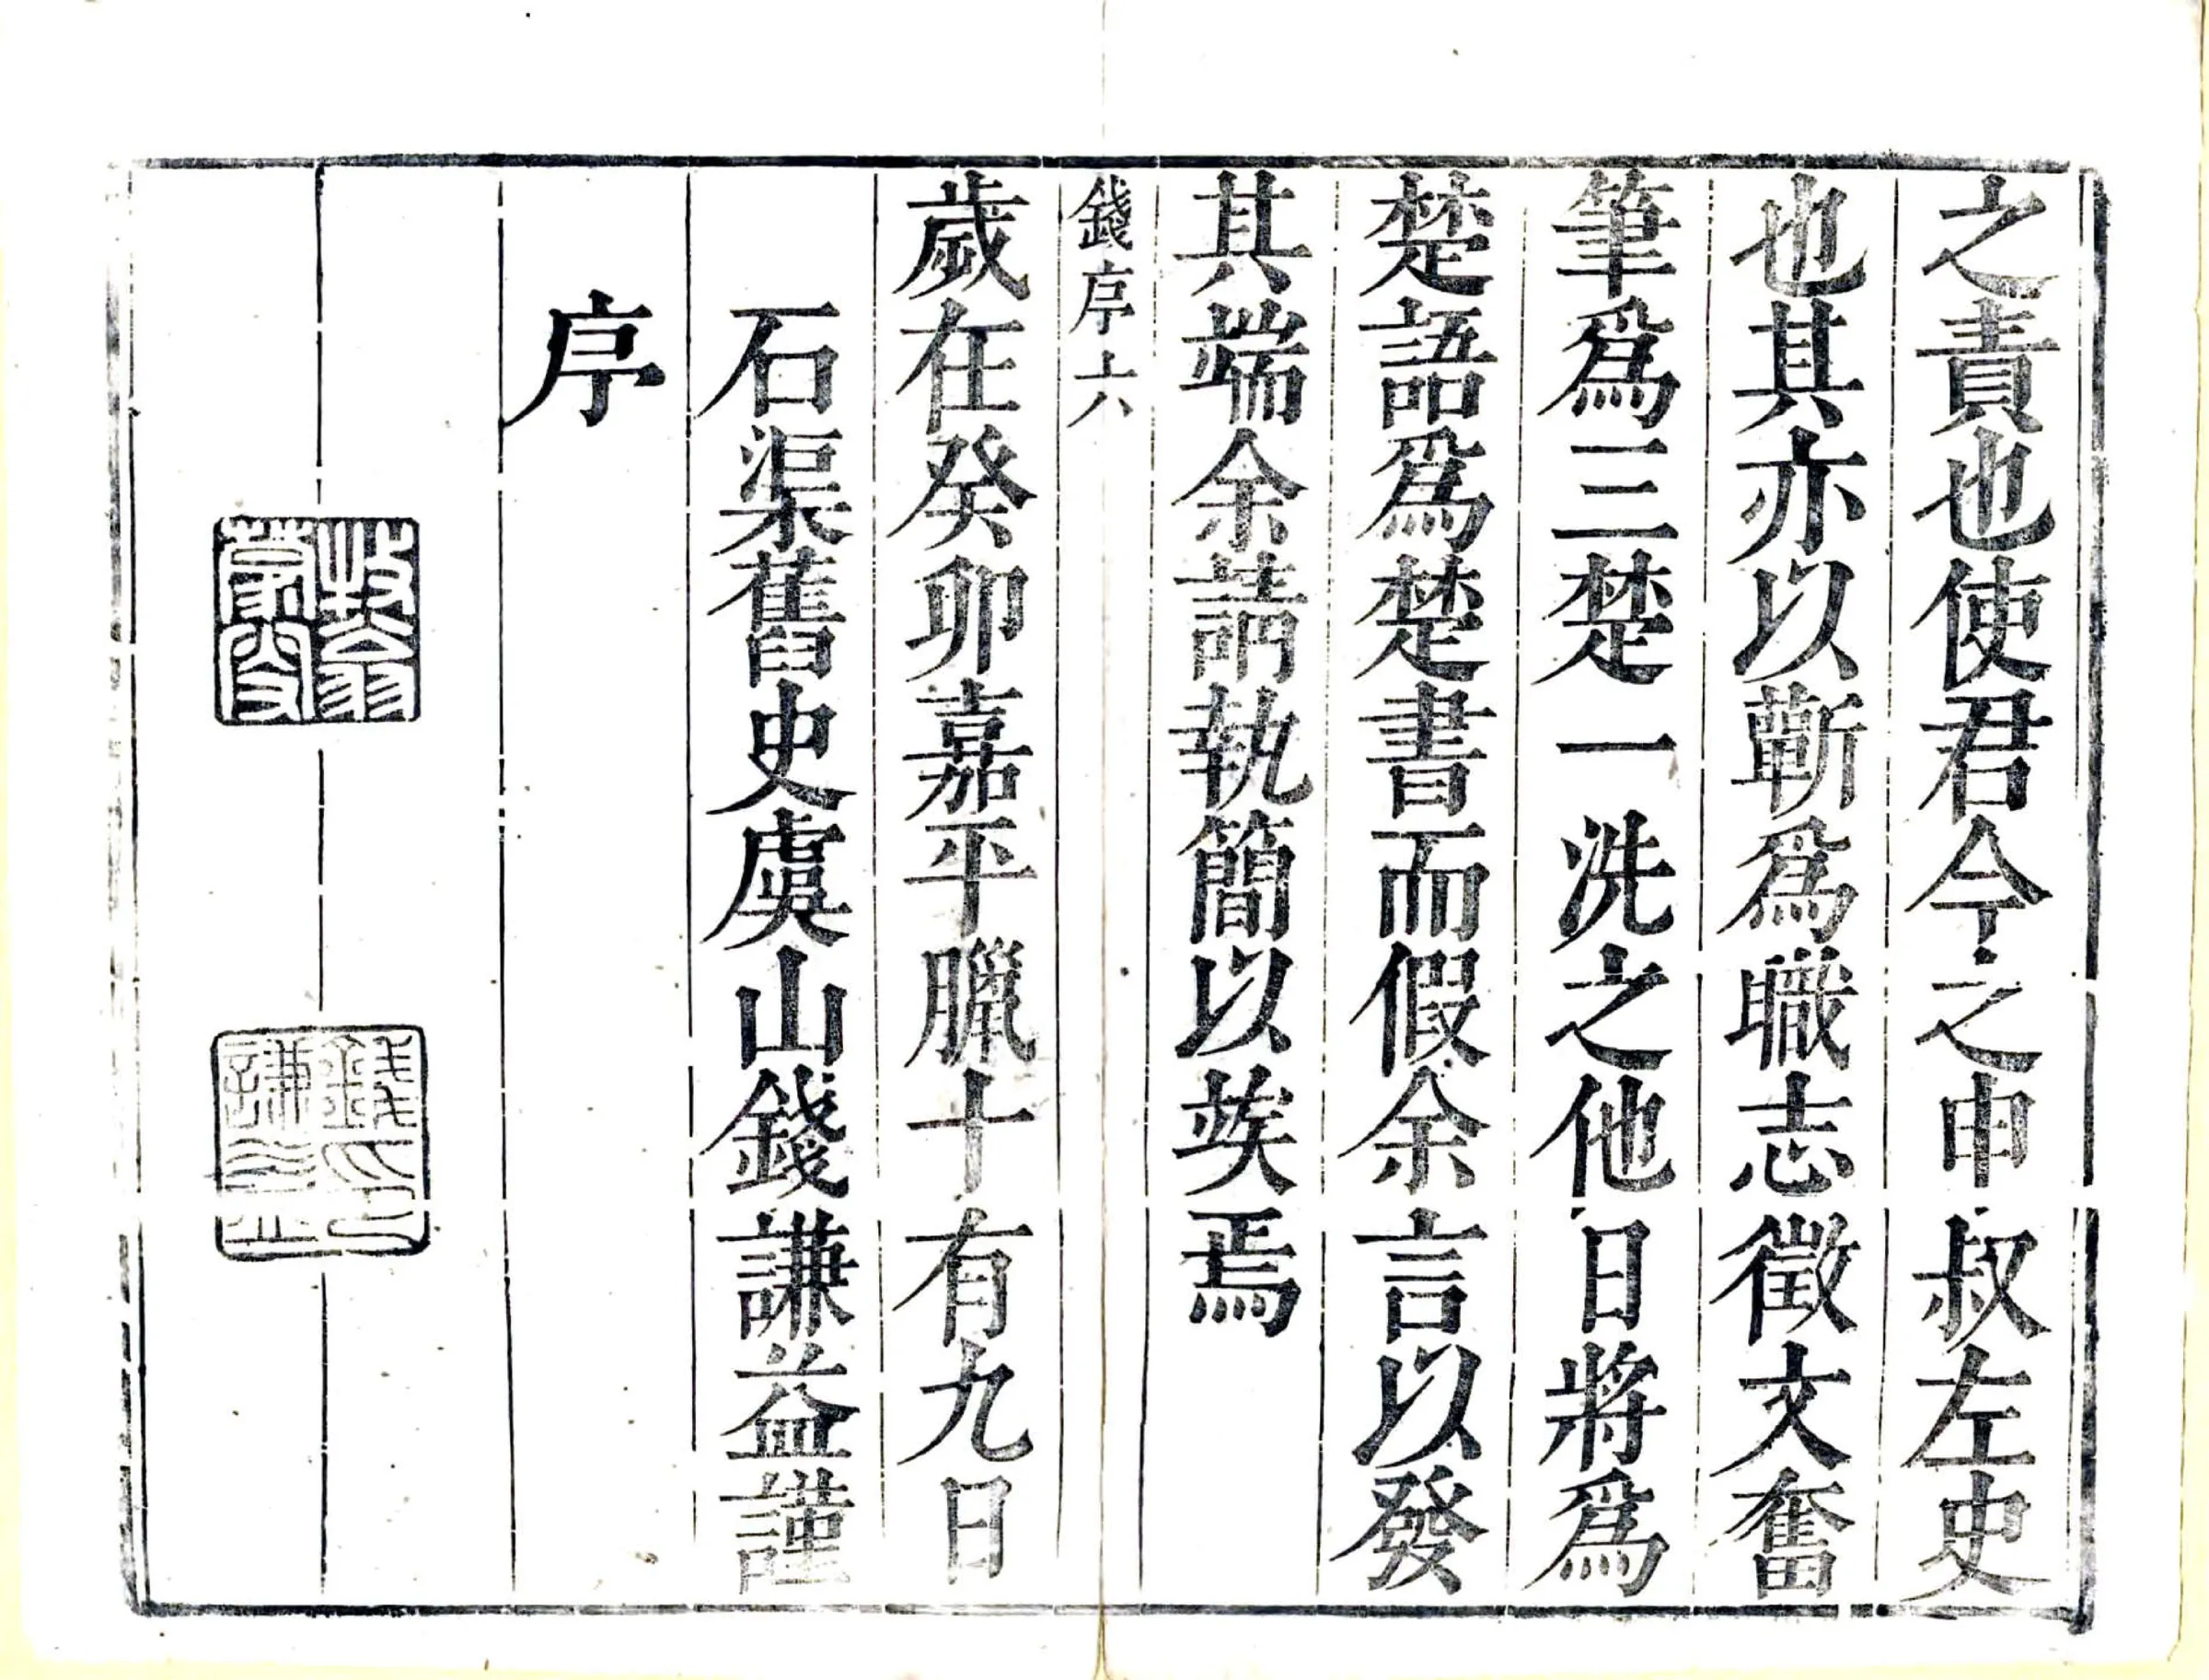 之責也使君今之申叔左史
也其亦以蘄爲職志徵文奮
筆爲三楚一洗之他日將爲
楚語爲楚書而假余言以發
其端余請執簡以竢焉
錢序 六
歲在癸卯嘉平臘十有九日
石渠舊史虞山錢謙益謹
序
牧翁蒙叟
錢謙益印